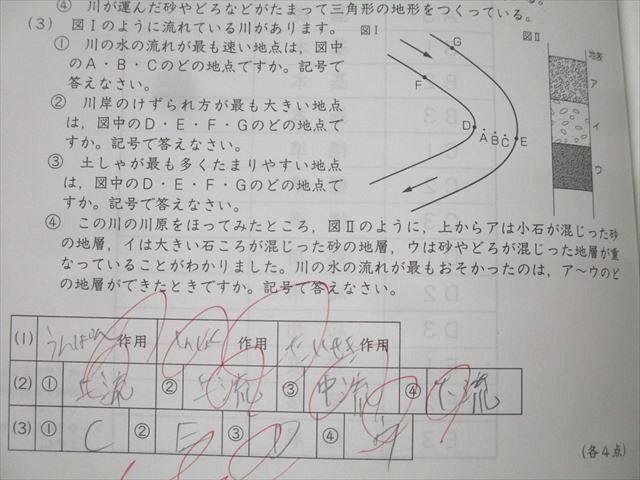 ④ 川が運んだ砂やどろなどがたまって三角形の地形をつくっている。
(3) 図Ⅰのように流れている川があります。
① 川の水の流れが最も速い地点は，図中
のA・B・Cのどの地点ですか。記号で
答えなさい。
② 川岸のけずられ方が最も大きい地点
は，図中のD・E・F・Gのどの地点で
すか。記号で答えなさい。
③ 土しゃが最も多くたまりやすい地点
は，図中のD・E・F・Gのどの地点で
すか。記号で答えなさい。
図Ⅰ
G
F
D
A
B
C
E
図Ⅱ
地表
ア
イ
ウ
④ この川の川原をほってみたところ，図Ⅱのように，上からアは小石が混じった砂
の地層，イは大きい石ころが混じった砂の地層，ウは砂やどろが混じった地層が重
なっていることがわかりました。川の水の流れが最もおそかったのは，ア〜ウのど
の地層ができたときですか。記号で答えなさい。
(1) うんぱん作用 しんしょく作用 たいせき作用
(2) ① 上流 ② 上流 ③ 中流 ④ 下流
(3) ① C ② E ③ D ④ ウ
(各4点)